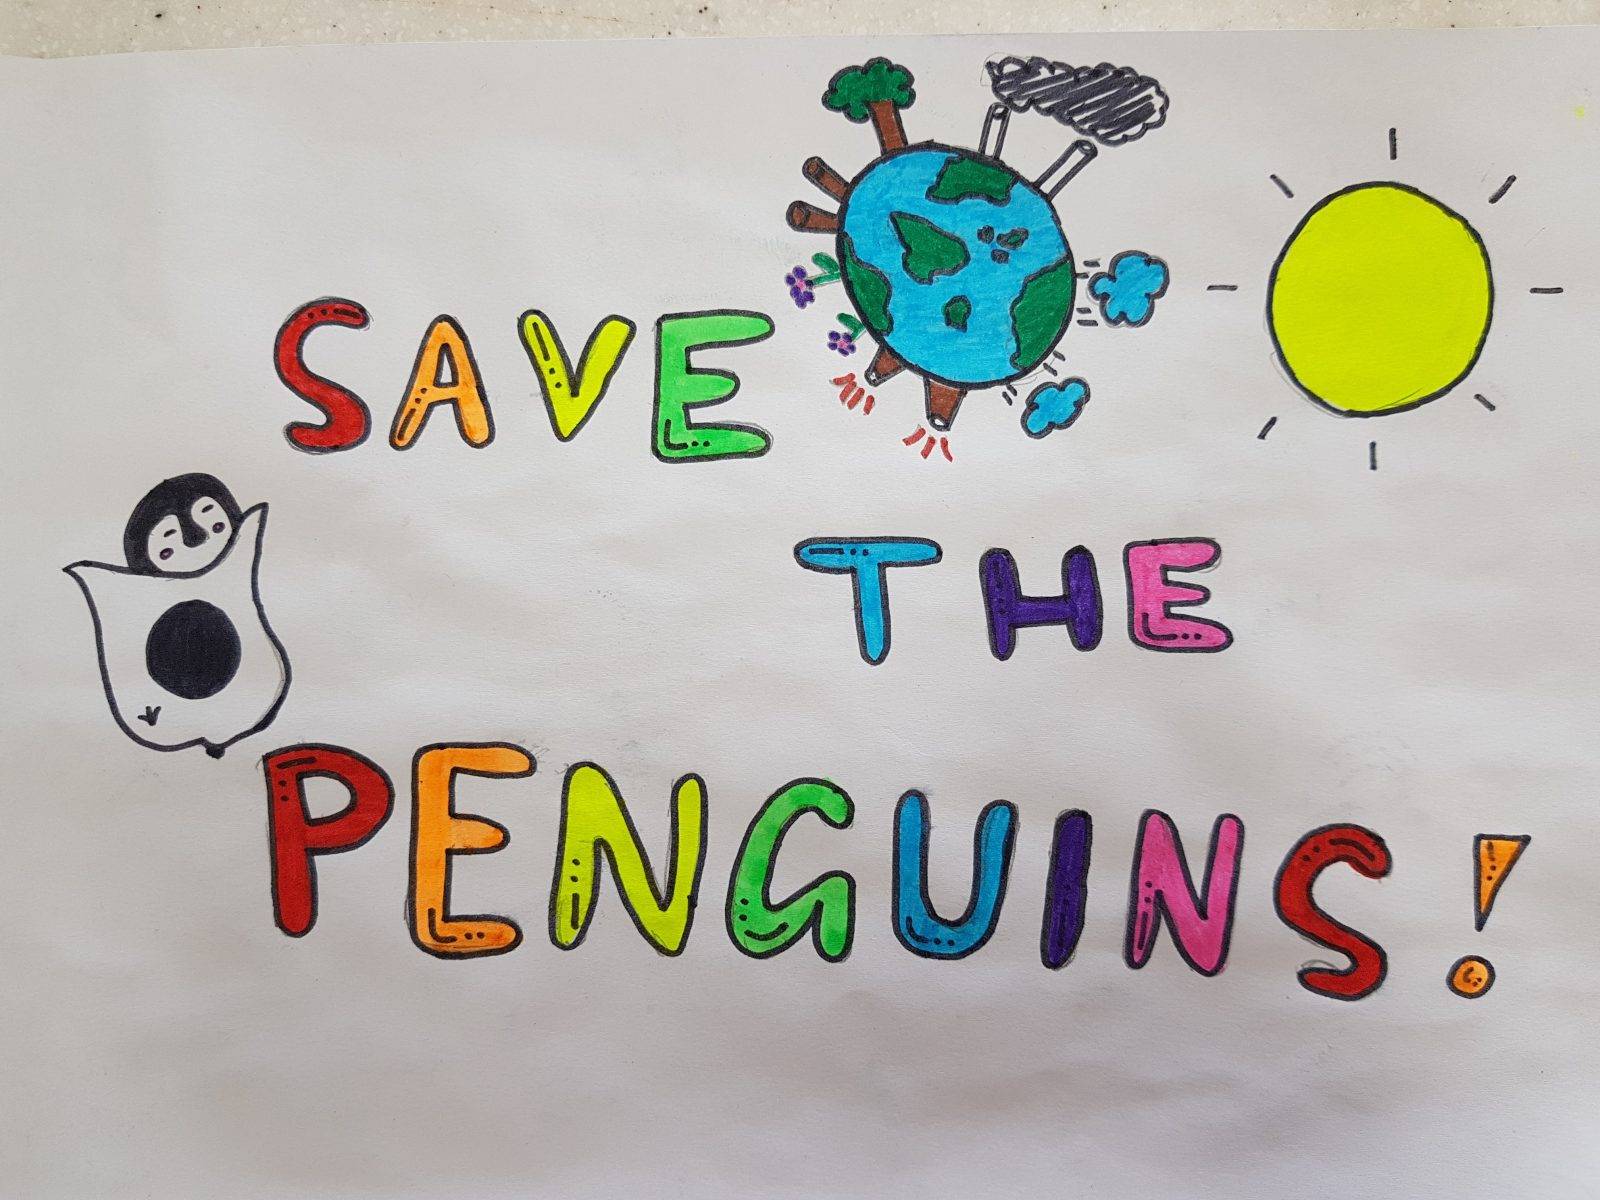 SAVE
THE
PENGUINS!